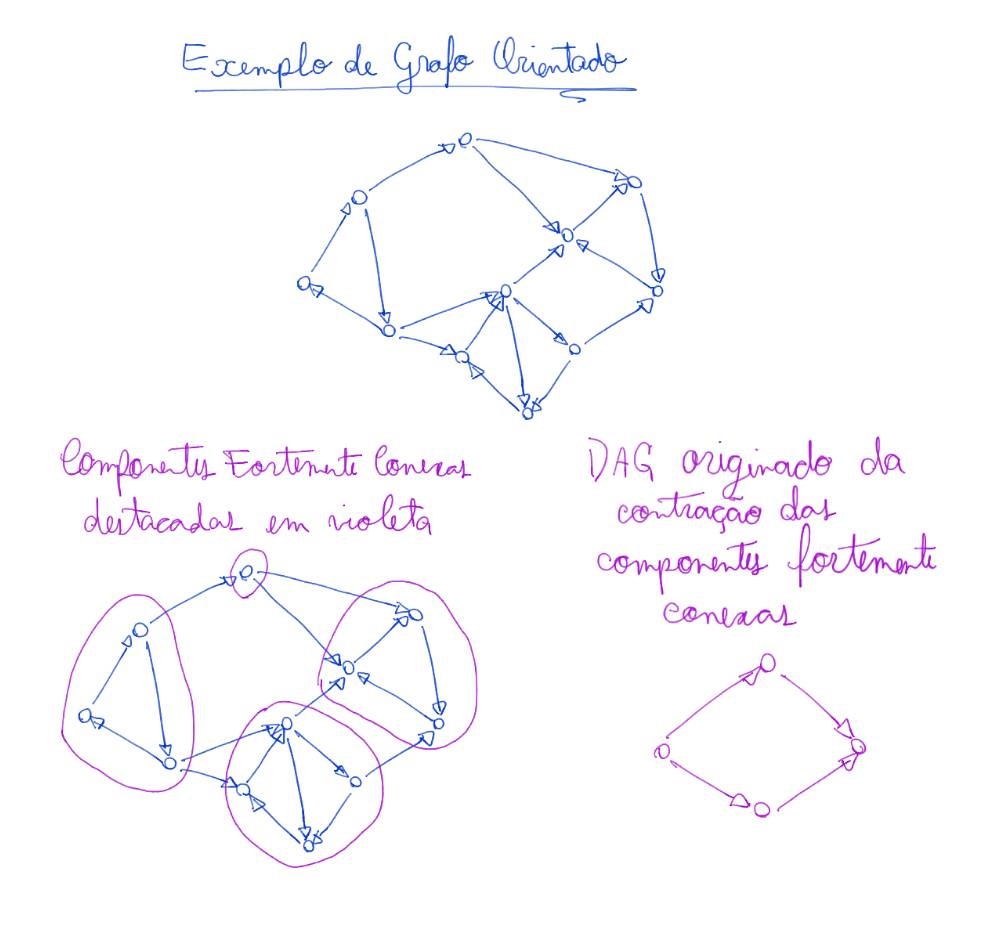 Exemplo de Grafo Orientado
Componentes Fortemente Conexas
destacadas em violeta
DAG originado da
contração das
componentes fortemente
conexas